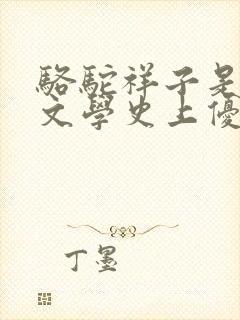 駱駝祥子是
文學史上優
丁墨